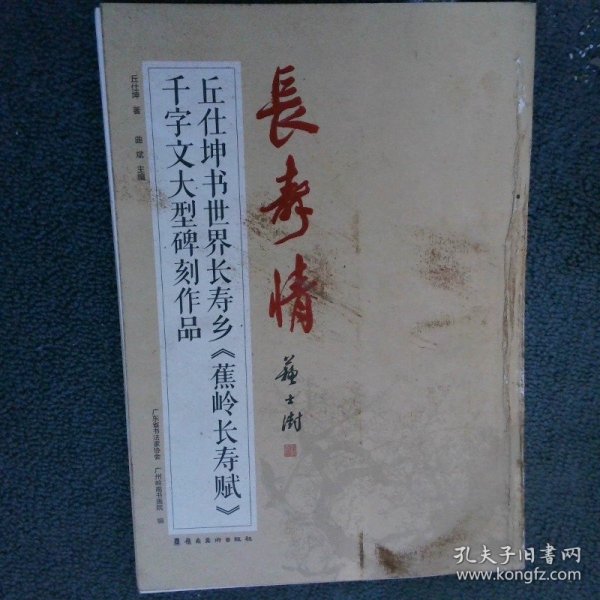 長寿情
蘇士澍
丘仕坤书世界长寿乡《蕉岭长寿赋》
千字文大型碑刻作品
丘仕坤 著 曲斌 主编
广东省书法家协会 广州岭南书画院 编
岭南美术出版社
孔夫子旧书网
www.kongfz.com